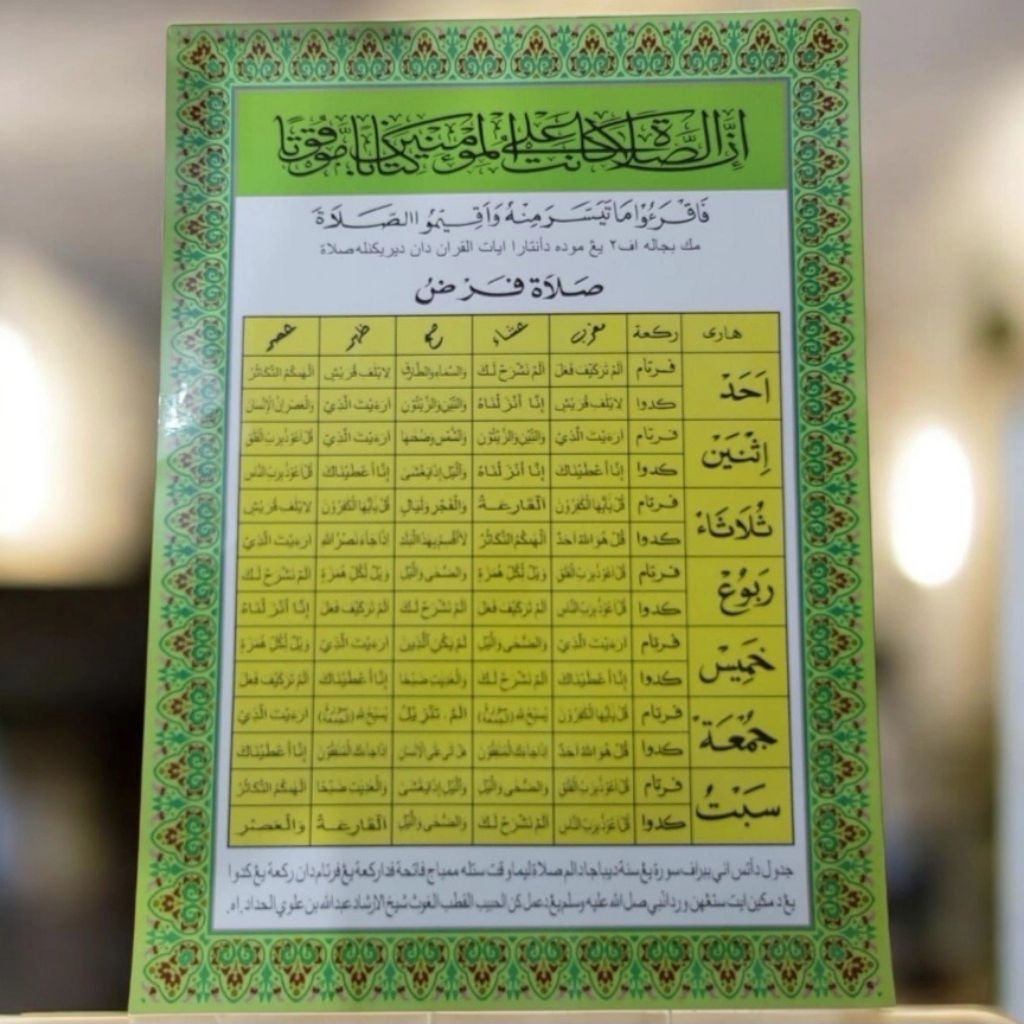 إِنَّ الصَّلَاةَ كَانَتْ عَلَى الْمُؤْمِنِينَ كِتَابًا مَّوْقُوتًا
فَاقْرَءُوْا مَا تَيَسَّرَ مِنْهُ وَاَقِيْمُو االصَّلَاةَ
مك بجاله اف٢ يڠ موده دأنتارا ايات القران دان ديريكنله صلاة
صَلَاة فَرْضُ
هاري ركعة مغرب عشاء صبح ظهر عصر
اَحَدْ
فرتام اَلَمْ تَرَكَيْفَ فَعَلَ اَلَمْ نَشْرَحْ لَكَ وَالسَّمَاءِ وَالطَّارِقِ لاِيْلٰفِ قُرَيْشٍ اَلْهٰكُمُ التَّكَاثُرُ
كدوا لاِيْلٰفِ قُرَيْشٍ إِنَّا أَنْزَلْنَاهُ وَالتِّيْنِ وَالزَّيْتُوْنِ ارءَيْتَ الَّذِيْ وَالْعَصْرِ اِنَّ الْإِنْسَانَ
اِثْنَيْن
فرتام ارءَيْتَ الَّذِيْ وَالتِّيْنِ وَالزَّيْتُوْنِ وَالشَّمْسِ وَضُحٰهَا ارءَيْتَ الَّذِيْ قُلْ اَعُوْذُ بِرَبِّ الْفَلَقِ
كدوا إِنَّا أَعْطَيْنَاكَ إِنَّا أَنْزَلْنَاهُ وَالَّيْلِ إِذَا يَغْشَى إِنَّا أَعْطَيْنَاكَ قُلْ اَعُوْذُ بِرَبِّ النَّاسِ
ثُلَاثَاءْ
فرتام قُلْ يٰأَيُّهَا الْكٰفِرُوْنَ اَلْقَارِعَةُ وَالْفَجْرِ وَلَيَالٍ قُلْ يٰأَيُّهَا الْكٰفِرُوْنَ لاِيْلٰفِ قُرَيْشٍ
كدوا قُلْ هُوَ اللهُ اَحَدٌ اَلْهٰكُمُ التَّكَاثُرُ لاَأُقْسِمُ بِهٰذَا الْبَلَدِ إِذَا جَاءَ نَصْرُ اللهِ ارءَيْتَ الَّذِيْ
رَبُوْعْ
فرتام قُلْ اَعُوْذُ بِرَبِّ الْفَلَقِ وَيْلٌ لِّكُلِّ هُمَزَةٍ وَالضُّحَى وَالَّيْلِ وَيْلٌ لِّكُلِّ هُمَزَةٍ اَلَمْ نَشْرَحْ لَكَ
كدوا قُلْ اَعُوْذُ بِرَبِّ النَّاسِ اَلَمْ تَرَكَيْفَ فَعَلَ اَلَمْ نَشْرَحْ لَكَ اَلَمْ تَرَكَيْفَ فَعَلَ إِنَّا أَنْزَلْنَاهُ
خَمِيْس
فرتام ارءَيْتَ الَّذِيْ وَالضُّحَى وَالَّيْلِ لَمْ يَكُنِ الَّذِيْنَ ارءَيْتَ الَّذِيْ وَيْلٌ لِّكُلِّ هُمَزَةٍ
كدوا إِنَّا أَعْطَيْنَاكَ اَلَمْ نَشْرَحْ لَكَ وَالْعٰدِيٰتِ ضَبْحًا إِنَّا أَعْطَيْنَاكَ اَلَمْ تَرَكَيْفَ فَعَلَ
جُمْعَةْ
فرتام قُلْ يٰأَيُّهَا الْكٰفِرُوْنَ يُسَبِّحُ لِلّٰهِ الٓمٓ . تَنْزِيْلُ يُسَبِّحُ لِلّٰهِ ارءَيْتَ الَّذِيْ
كدوا قُلْ هُوَ اللهُ اَحَدٌ إِذَا جَاءَكَ الْمُنٰفِقُوْنَ هَلْ أَتَى عَلَى الْإِنْسَانِ إِذَا جَاءَكَ الْمُنٰفِقُوْنَ إِنَّا أَعْطَيْنَاكَ
سَبْتُ
فرتام قُلْ اَعُوْذُ بِرَبِّ الْفَلَقِ وَالضُّحَى وَالَّيْلِ وَالَّيْلِ إِذَا يَغْشَى وَالْعٰدِيٰتِ ضَبْحًا اَلْهٰكُمُ التَّكَاثُرُ
كدوا قُلْ اَعُوْذُ بِرَبِّ النَّاسِ اَلَمْ نَشْرَحْ لَكَ وَالضُّحَى وَالَّيْلِ اَلْقَارِعَةُ وَالْعَصْرِ
جدول دأتس اني بيراف سورة يڠ سنة دبيباجا دالم صلاة ليما وقت ستله ممباج فاتحة فدا ركعة يڠ فرتام دان ركعة يڠ كدوا
يڠ د مكين ايت ستڠهن ورد النبي صل الله عليه وسلم يڠ دعملكن الحبيب القطب الغوث شيخ الارشاد عبد الله بن علوي الحداد. اه.